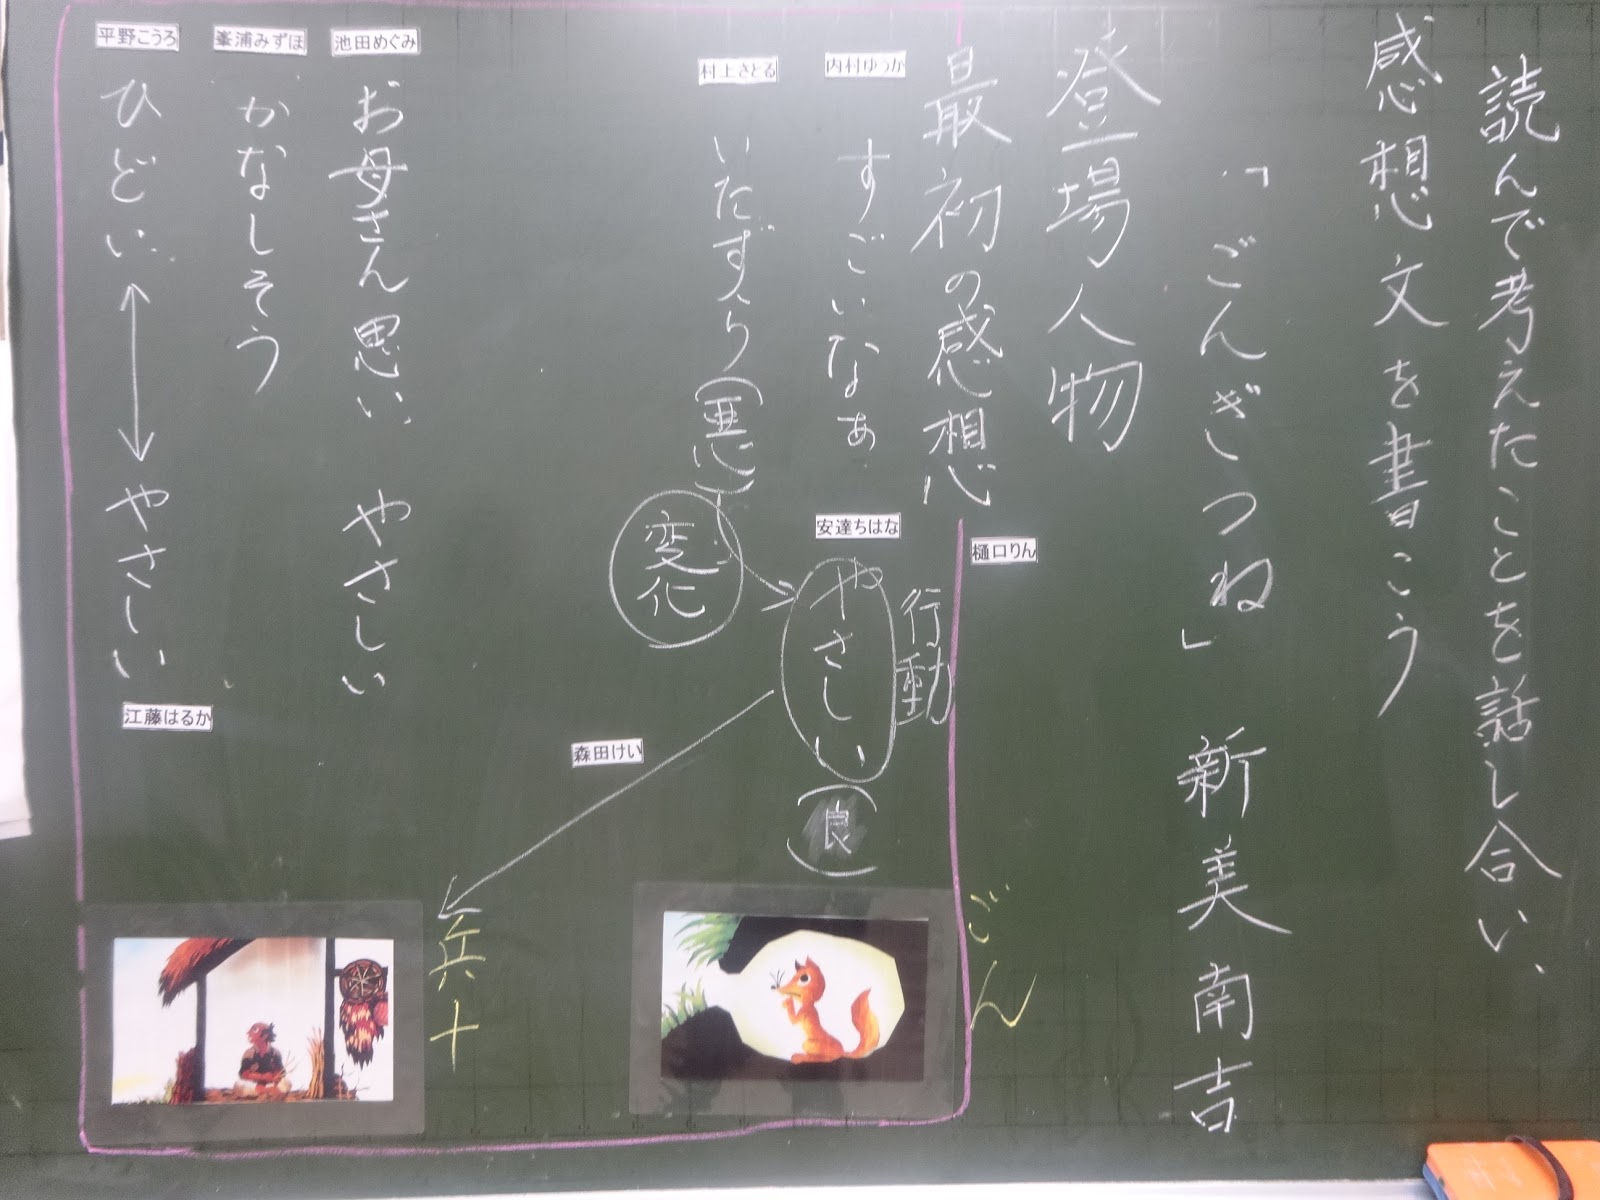 読んで考えたことを話し合い、
感想文を書こう
「ごんぎつね」 新美南吉
登場人物
最初の感想
樋口りん
ごん
内村ゆうか
すごいなぁ
安達ちはな
行動
やさしい
(良)
村上さとる
いたずら(悪)
変化
森田けい
兵十
池田めぐみ
お母さん思い やさしい
峯浦みずほ
かなしそう
平野こうろ
ひどい ⟷ やさしい
江藤はるか